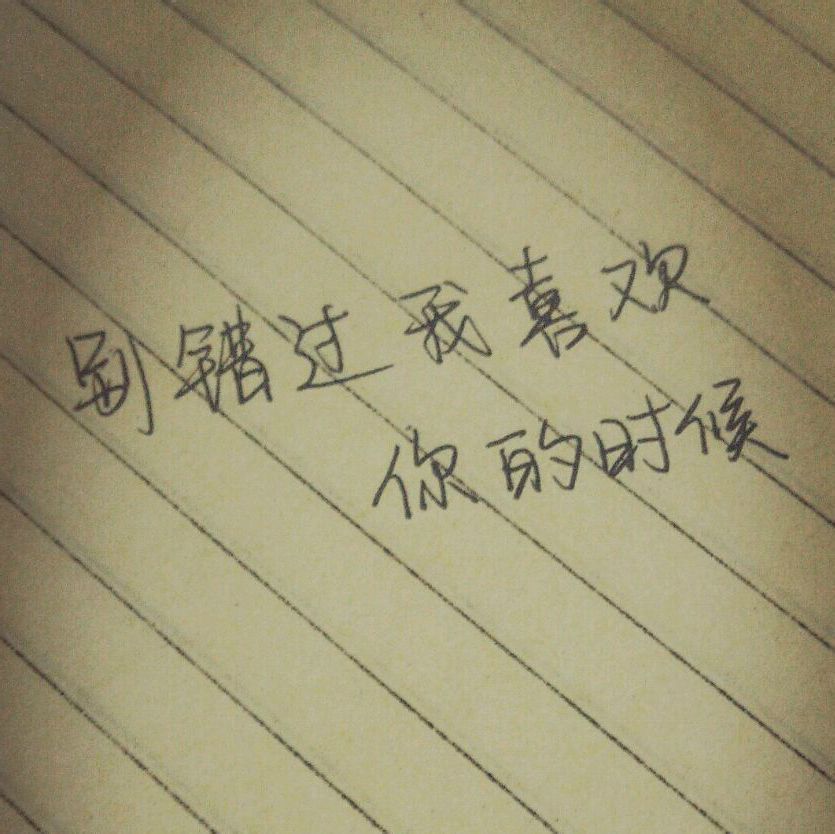 别错过我喜欢
你的时候